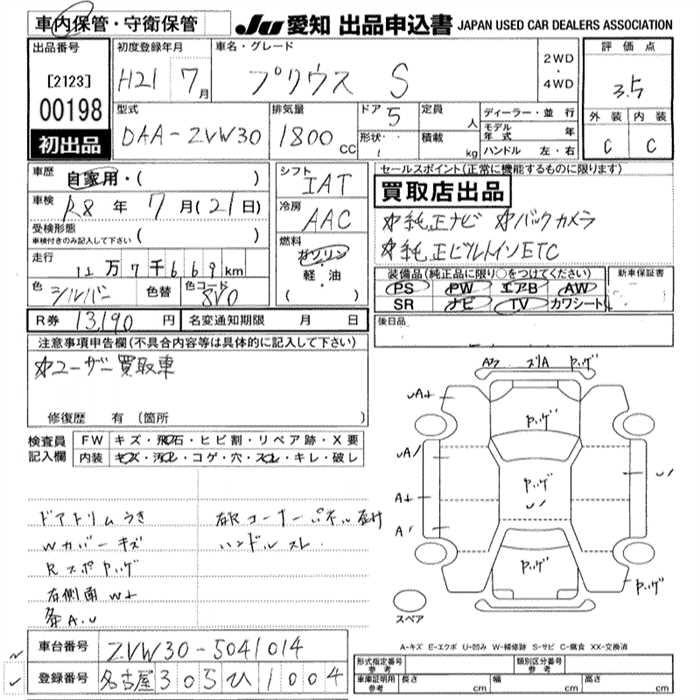 車内保管・守衛保管
JU 愛知 出品申込書 JAPAN USED CAR DEALERS ASSOCIATION
出品番号
[2123]
00198
初出品
初度登録年月
H21 7月
車名・グレード
プリウス S
2WD
・
4WD
評価点
3.5
外装 内装
C C
型式
DAA-ZVW30
排気量
1800cc
ドア 5
形状・・
定員 人
積載 kg
ディーラー・並行
モデル年式 年
ハンドル 左・右
車歴 自家用・( )
車検 R8年 7月(21日)
受検形態
車検付きのみ記入して下さい ( )
走行 12万7千669km
色 シルバー 色替 色コード 8V0
シフト IAT
冷房 AAC
燃料
ガソリン
軽・油
( )
セールスポイント(正常に機能するものに限ります)
買取店出品
☆純正ナビ ☆バックカメラ
☆純正ビルトインETC
装備品(純正品に限り○をつけてください)
PS PW エアB AW
SR ナビ TV カワシート
新車保証書
後日品
R券 13,190円 名変通知期限 月 日
注意事項申告欄(不具合内容等は具体的に記入して下さい)
☆ユーザー買取車
修復歴 有(箇所 )
検査員記入欄
FW キズ・飛石・ヒビ割・リペア跡・X要
内装 キズ・汚れ・コゲ・穴・スレ・キレ・破レ
ドアトリムうき
Wカバーキズ
Rスポヤッゲ
右側面W+
条A.U
ハンドルスレ
ヤッゲ
A+
A/
A+
A/
ヤッゲ
ヤッゲ
ヤッゲ
ヤッゲ
スペア
A-キズ E-エクボ U-凹み W-補修跡 S-サビ C-腐食 XX-交換済
車台番号 ZVW30-5041014
登録番号 名古屋 305 ひ 1004
形式指定番号 参考
類別区分番号 参考
車庫証明用 参考 長さ cm 幅 cm 高さ cm